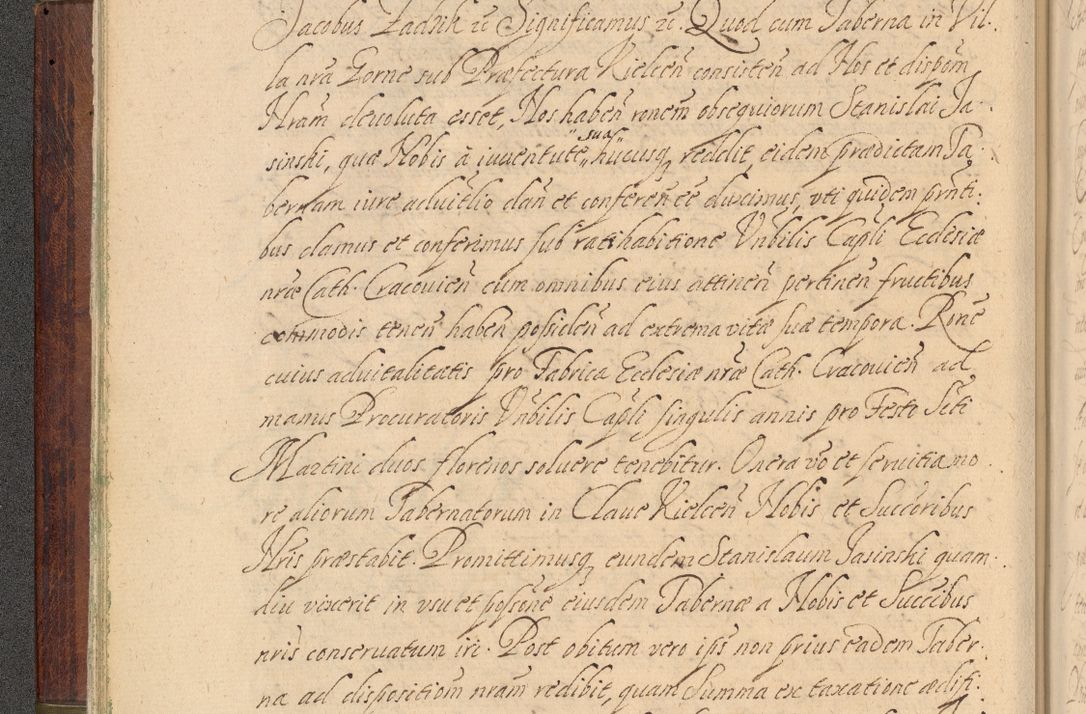 Jacobus Zadzik rc Significamus rc. Quod cum Taberna in Vil-
la nra Gorne sub Præfectura Kielceñ consisteñ ad Nos et dispoм
Nram deuoluta esset, Nos habeñ ronem obsequiorum Stanislai Ja-
sinski, quæ Nobis à iuuentute sua hucusq reddit, eidem prædictam Ta-
bernam iure aduitlio dañ et conferen ee duximus, vti quidem prñti-
bus damus et conferimus sub ratihabitione Vnbilis Capli Ecclesiæ
nræ Cath. Cracouieñ cum omnibus eius attineñ pertineñ fructibus
commodis teneñ habeñ possideñ ad extrema vitæ suæ tempora. Rone
cuius aduitalitatis pro Fabrica Ecclesiæ nræ Cath. Cracouieñ ad
manus Procuratoris Vnbilis Capli singulis annis pro Festo Scti
Martini duos florenos soluere tenebitur. Onera vo et seruitia mo-
re aliorum Tabernatorum in Claue Kielceñ Nobis et Succoribus
Nris præstabit. Promittimusq eundem Stanislaum Jasinski quam-
diu vixerit in vsu et possone eiusdem Tabernæ a Nobis et Succibus
nris conseruatum iri. Post obitum vero ipš non prius eadem Taber-
na ad dispositiom nram redibit, quam Summa ex taxatione ædifi-